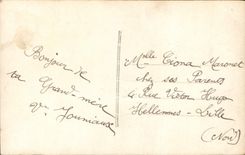 Bonjour de
ta Grand-mère
Mlle Ciona Marionet
chez ses Parents
4 Rue Victor Hugo
Hellemmes - Lille
(Nord)